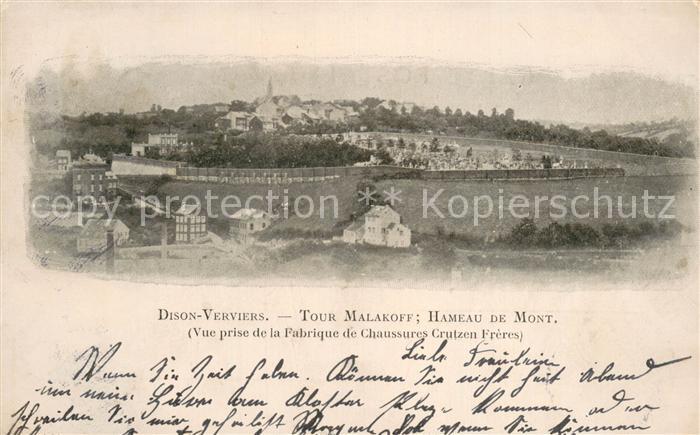 Copyright Kopierschutz
DISON-VERVIERS. — TOUR MALAKOFF; HAMEAU DE MONT.
(Vue prise de la Fabrique de Chaussures Crutzen Frères)
Liebe Fräulein
Wann Sie Zeit haben. Können Sie nicht heit Abend
um mein am Kloster kommen oder
schreiben Sie mir wenn Sie können